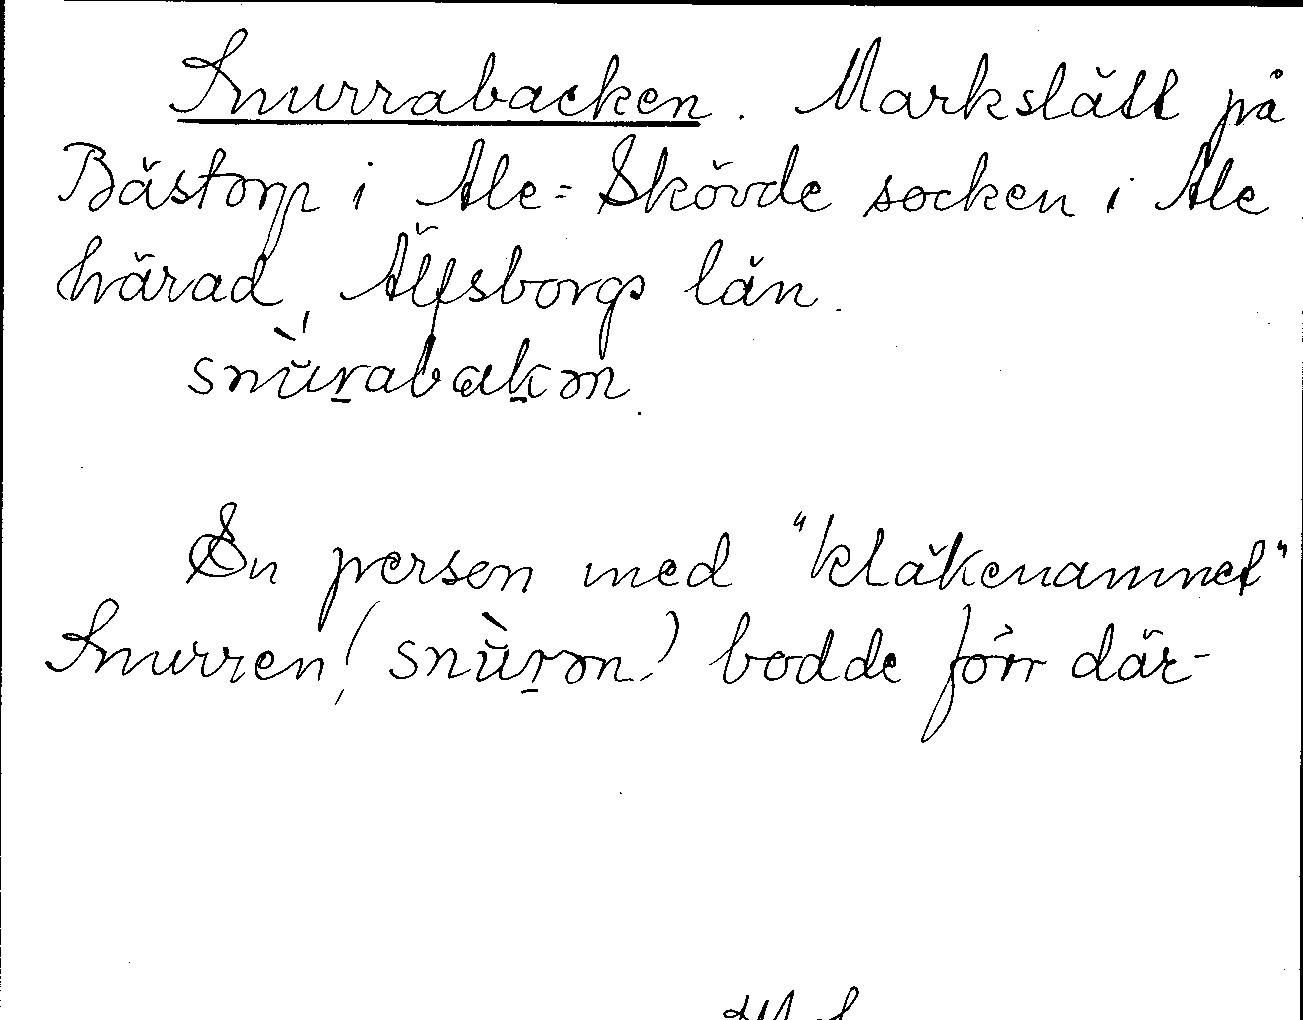 Snurrabacken. Markslätt på
Bästorp i Ale-Skövde socken i Ale
härad, Älfsborgs län.
snùrabakən.
En person med "kläkenamnet"
Snurren (snùrən) bodde förr där-